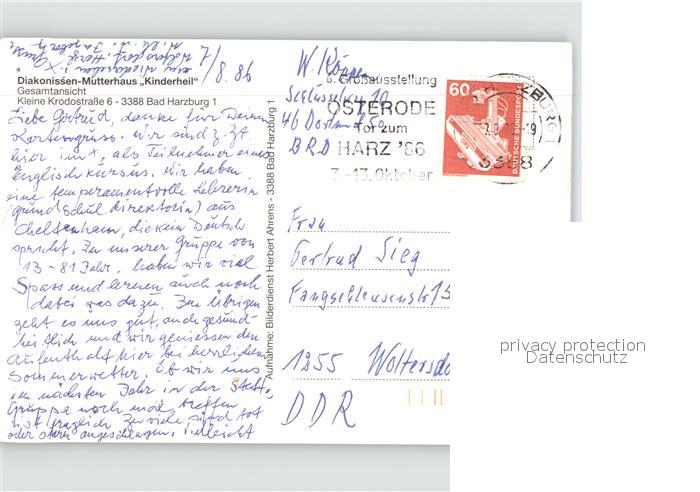 7/8.86
Diakonissen-Mutterhaus „Kinderheil"
Gesamtansicht
Kleine Krodostraße 6 - 3388 Bad Harzburg 1
Liebe Gertrud, danke für Deinen
Kartengruss. Wir sind z. Zt.
hier im, als Teilnehmer eines
Englisch kursus. Wir haben
eine temperamentvolle Lehrerin
(grundschul direktorin) aus
Cheltenham, die kein Deutsch
spricht. In unserer Gruppe von
13 - 81 Jahr. haben wir viel
Spass und lernen auch noch
dabei was dazu. Im übrigen
geht es uns gut, auch gesund-
heitlich und wir geniessen den
Aufenthalt hier bei herrlichem
Sommerwetter. Ob wir uns
im nächsten Jahr in der
Gruppe noch mal treffen
ist fraglich. Zu viele sind tot
oder stark angeschlagen. Vielleicht
Aufnahme: Bilderdienst Herbert Ahrens - 3388 Bad Harzburg 1
W. 
46 Dortmund 50
BRD
6. Großausstellung
OSTERODE
Tor zum
HARZ '86
3.-13. Oktober
60
DEUTSCHE BUNDESPOST
3388
Frau
Gertrud Sieg
Fangschleusenstr 15
1255 Woltersdo
DDR
privacy protection
Datenschutz